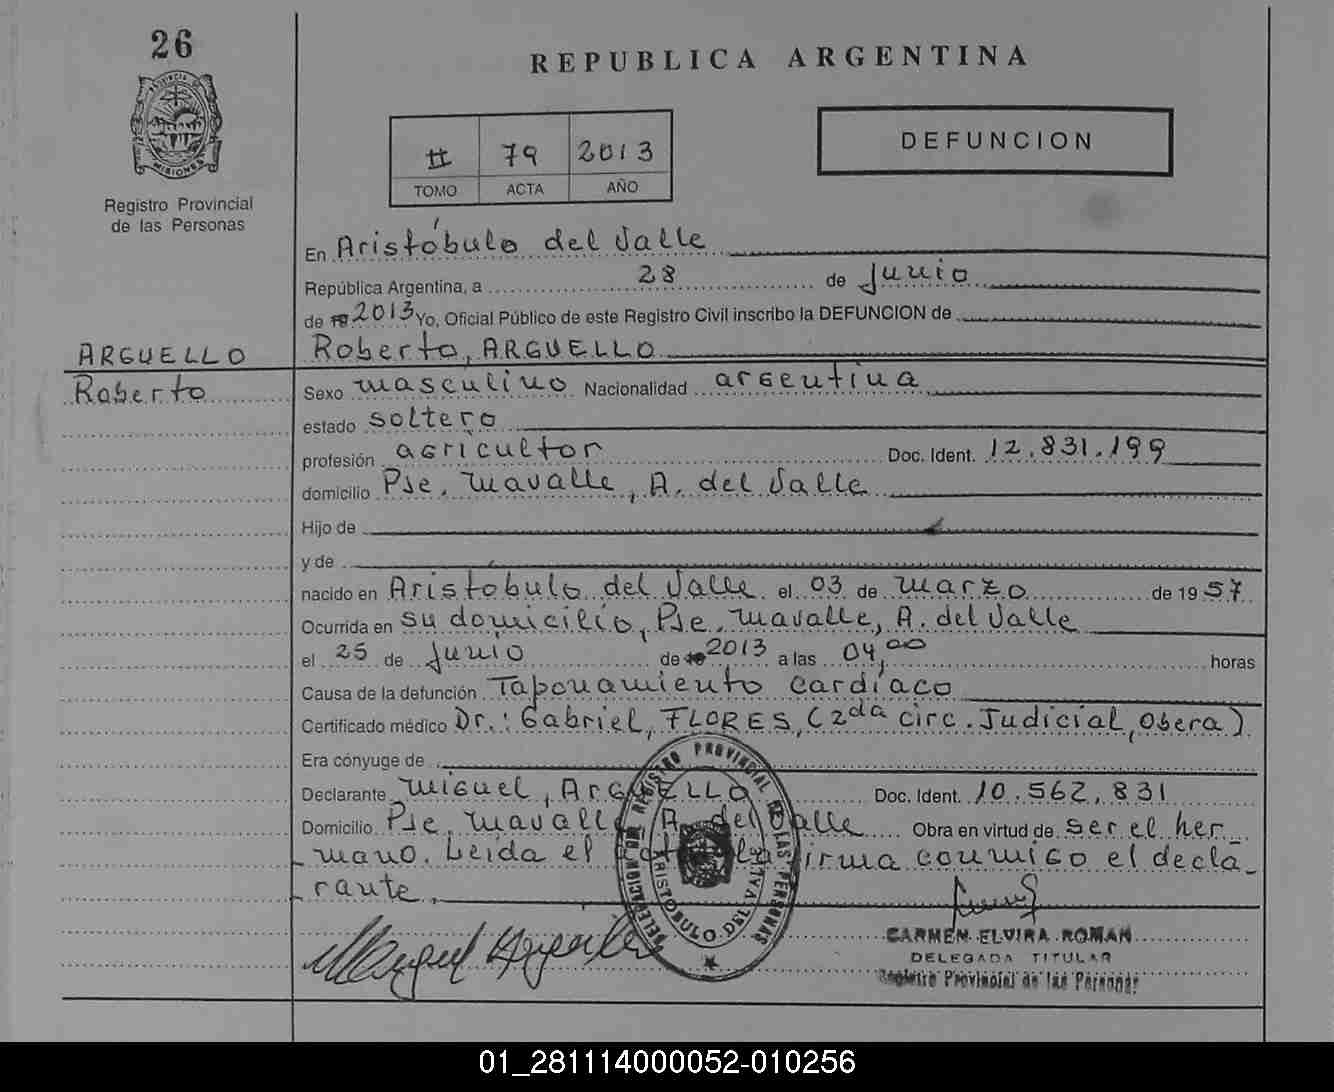 26
REPUBLICA ARGENTINA
PROVINCIA DE
MISIONES
Registro Provincial
de las Personas
II 79 2013
TOMO ACTA AÑO
DEFUNCION
En Aristóbulo del Valle
República Argentina, a 28 de Junio
de 19 2013 Yo, Oficial Público de este Registro Civil inscribo la DEFUNCION de
ARGUELLO
Roberto
Roberto, ARGUELLO
Sexo masculino Nacionalidad argentina
estado soltero
profesión agricultor Doc. Ident. 12.831.199
domicilio Pje. Mavalle, A. del Valle
Hijo de
y de
nacido en Aristóbulo del Valle el 03 de Marzo de 1957
Ocurrida en su domicilio, Pje. Mavalle, A. del Valle
el 25 de Junio de 19 2013 a las 04,00 horas
Causa de la defunción Taponamiento cardíaco
Certificado médico Dr.: Gabriel, FLORES, (2da circ. Judicial, Obera)
Era cónyuge de
Declarante Miguel, ARGUELLO Doc. Ident. 10.562.831
Domicilio Pje. Mavalle, A. del Valle Obra en virtud de ser el her
mano. Leida el acta, la firma conmigo el decla-
rante.
DELEGACION DEL REGISTRO PROVINCIAL DE LAS PERSONAS
ARISTOBULO DEL VALLE
Miguel Arguello
CARMEN ELVIRA ROMAN
DELEGADA TITULAR
Registro Provincial de las Personas
01_281114000052-010256